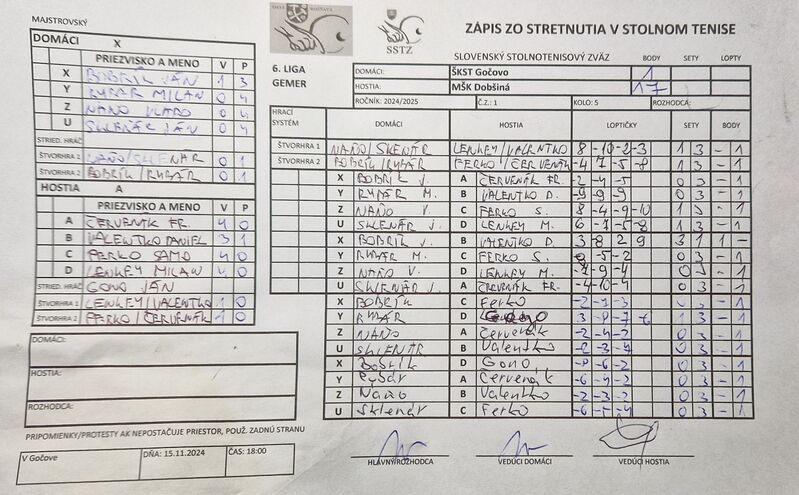 MAJSTROVSKÝ
DOMÁCI X
PRIEZVISKO A MENO V P
X BOBRÍK JÁN 1 3
Y RYBÁR MILAN 0 4
Z NAŇO VLADO 0 4
U SKLENÁR JÁN 0 4
STRIED. HRÁČ
ŠTVORHRA 1 NAŇO/SKLENÁR 0 1
ŠTVORHRA 2 BOBRÍK/RYBÁR 0 1
HOSTIA A
PRIEZVISKO A MENO V P
A ČERVENÁK FR. 4 0
B VALENTKO DANIEL 3 1
C FERKO SAMO 4 0
D LENKEY MILAN 4 0
STRIED. HRÁČ GONO JÁN
ŠTVORHRA 1 LENKEY/VALENTKO 1 0
ŠTVORHRA 2 FERKO/ČERVENÁK 1 0
DOMÁCI:
HOSTIA:
ROZHODCA:
PRIPOMIENKY/PROTESTY AK NEPOSTAČUJE PRIESTOR, POUŽ. ZADNÚ STRANU
V Gočove DŇA: 15.11.2024 ČAS: 18:00
SSTZ
ZÁPIS ZO STRETNUTIA V STOLNOM TENISE
SLOVENSKÝ STOLNOTENISOVÝ ZVÄZ BODY SETY LOPTY
6. LIGA
GEMER
DOMÁCI: ŠKST Gočovo 1
HOSTIA: MŠK Dobšiná 17
ROČNÍK: 2024/2025 Č.Z.: 1 KOLO: 5 ROZHODCA:
HRACÍ SYSTÉM DOMÁCI HOSTIA LOPTIČKY SETY BODY
ŠTVORHRA 1 NAŇO/SKLENÁR LENKEY/VALENTKO 8 -10 -2 -3 1 3 - 1
ŠTVORHRA 2 BOBRÍK/RYBÁR FERKO/ČERVENÁK -4 7 -5 -8 1 3 - 1
X BOBRÍK J. A ČERVENÁK FR. -2 -4 -5 0 3 - 1
Y RYBÁR M. B VALENTKO D. -9 -9 -9 0 3 - 1
Z NAŇO V. C FERKO S. 8 -4 -9 -10 1 3 - 1
U SKLENÁR J. D LENKEY M. 6 -7 -5 -8 1 3 - 1
X BOBRÍK J. B VALENTKO D. 3 -8 2 9 3 1 1 -
Y RYBÁR M. C FERKO S. -8 -5 -2 0 3 - 1
Z NAŇO V. D LENKEY M. -7 -9 -4 0 3 - 1
U SKLENÁR J. A ČERVENÁK FR. -4 -10 -4 0 3 - 1
X BOBRÍK C Ferko -2 -7 -3 0 3 - 1
Y RYBÁR D Gono 3 -8 -7 -6 1 3 - 1
Z NAŇO A Červenák -2 -4 -2 0 3 - 1
U SKLENÁR B Valentko 0 3 - 1
X Bobrík D Gono 0 3 - 1
Y Rybár A Červenák -6 -4 -2 0 3 - 1
Z Naňo B Valentko -2 -3 -2 0 3 - 1
U Sklenár C Ferko -6 -5 -4 0 3 - 1
HLAVNÝ ROZHODCA VEDÚCI DOMÁCI VEDÚCI HOSTIA